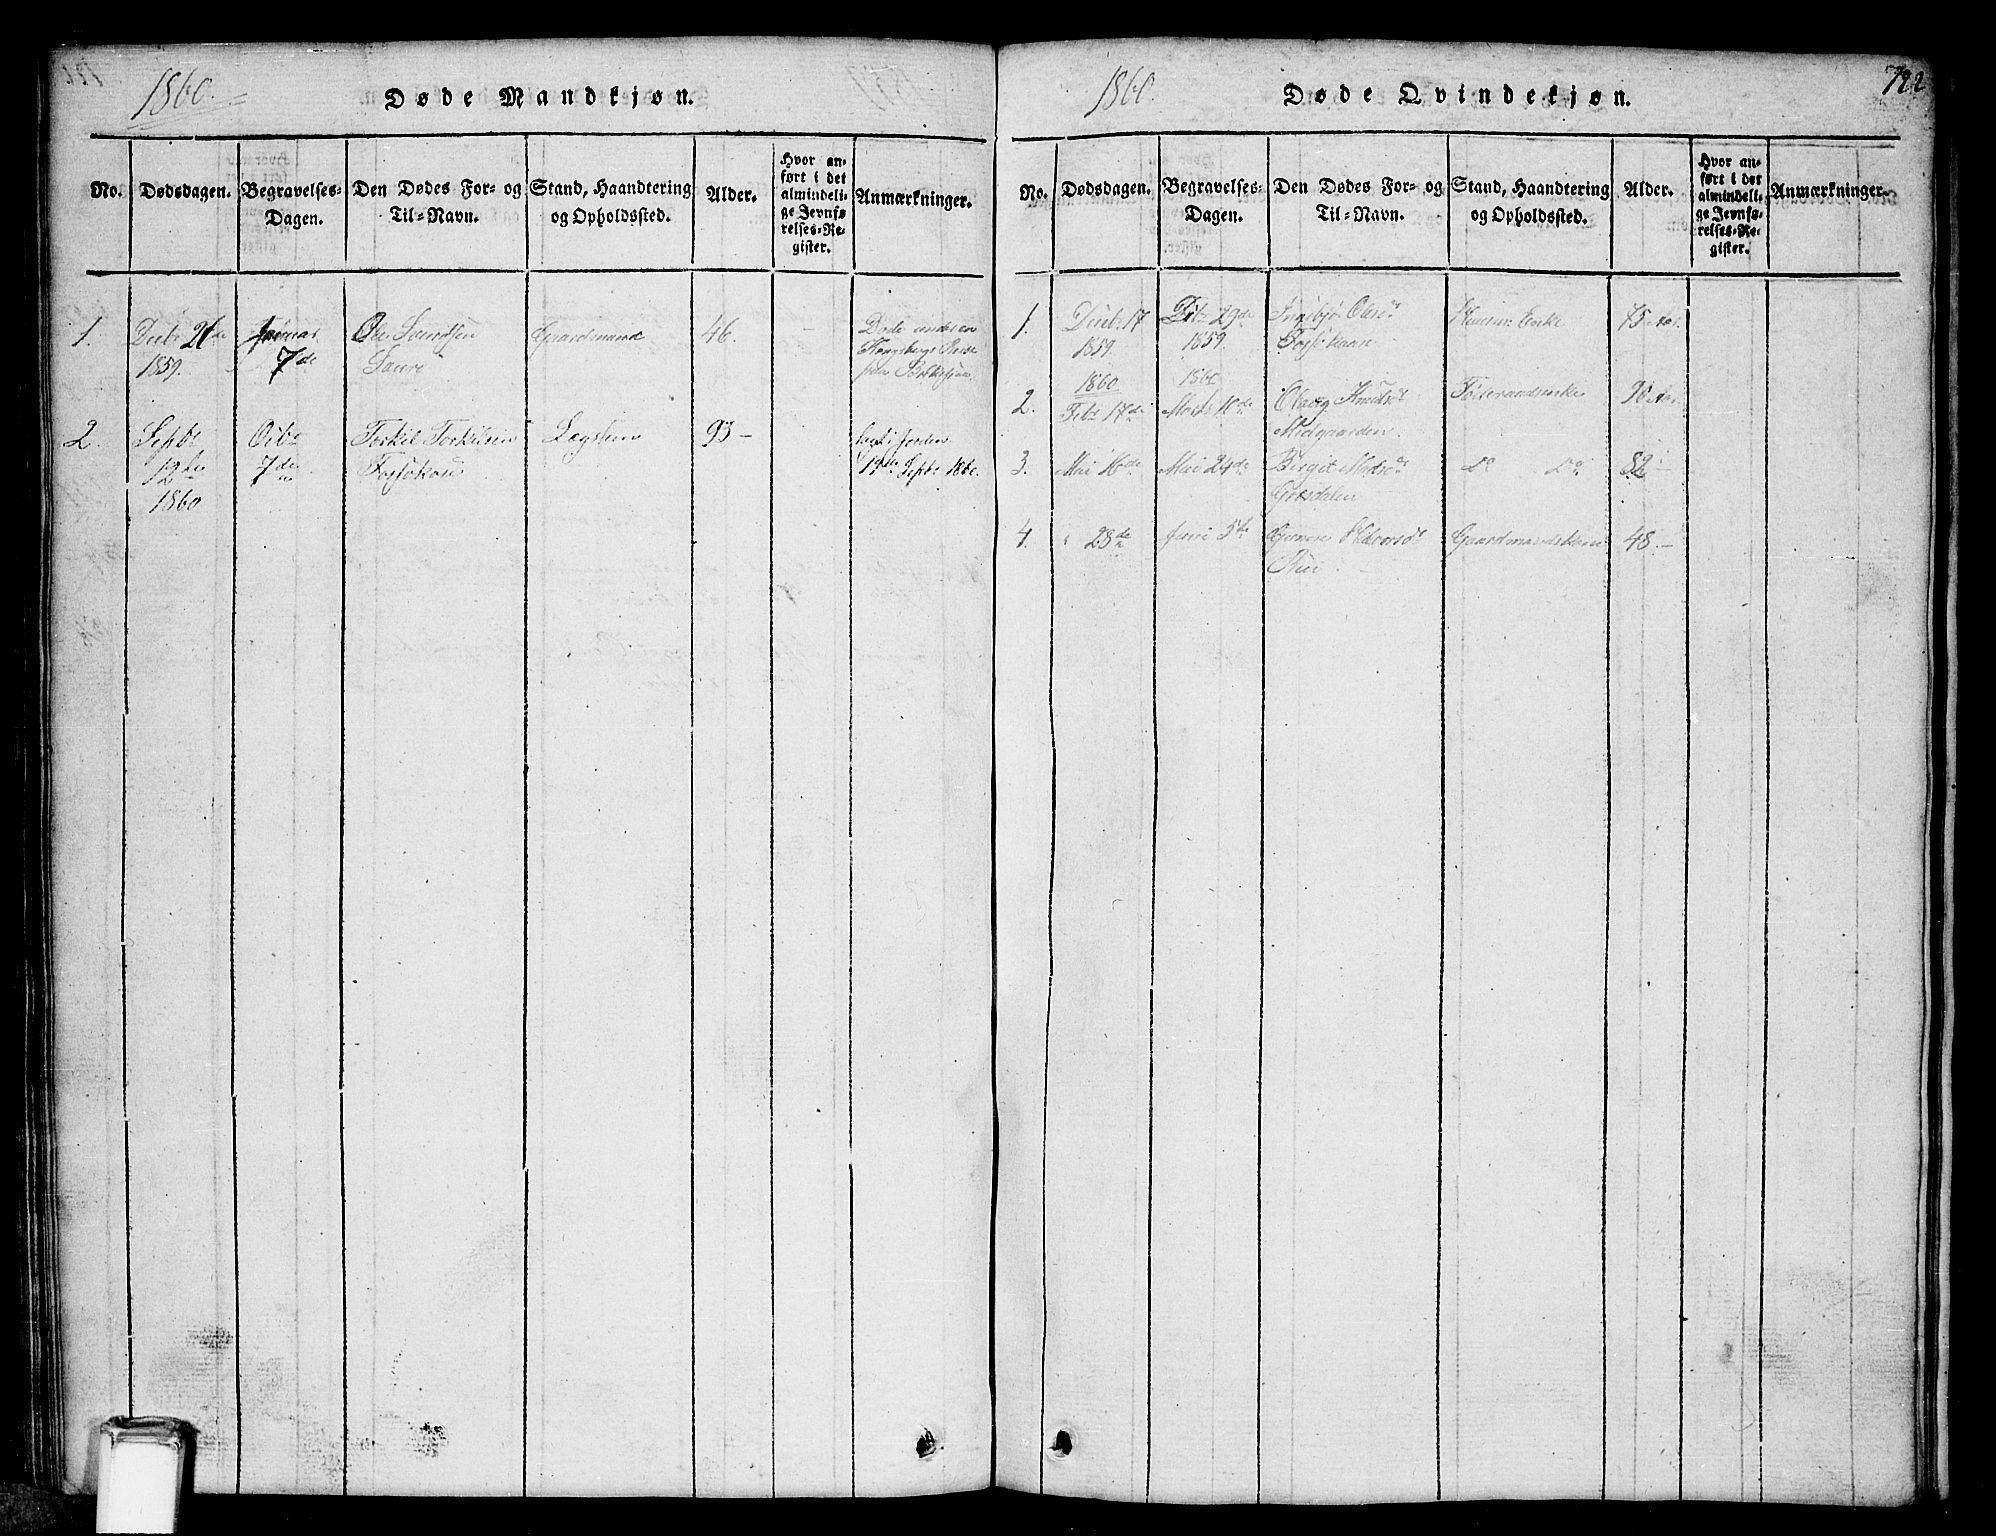 1860.
Døde Mandkjøn.
No.
Dødsdagen.
Begravelses-
Dagen.
Den Dødes For- og
Til-Navn.
Stand, Haandtering
og Opholdssted.
Alder.
Hvor an-
ført i det
almindeli-
ge Jevnfø
relses-Re-
gister.
Anmærkninger.
1.
Decbr 26de
1859.
Januar
7de
Ole
Gaardmand
46.
Døde
Kongsberg
2.
Septbr
12te
1860
Octbr
7de
Torkil Torkilsen
Fossøkaas
Lægslem
93 –
lagt i Jorden
Septbr 1860.
1860.
Døde Qvindekjøn.
122
No.
Dødsdagen.
Begravelses-
Dagen.
Den Dødes For- og
Til-Navn.
Stand, Haandtering
og Opholdssted.
Alder.
Hvor an-
ført i det
almindeli-
ge Jevnfø-
relses-Re-
gister.
Anmærkninger.
1.
Decbr 17
1859.
29de
1859.
Ingebjør Olsdr
Enke
75 Aar.
2.
1860
Febr 17de
1860
Marts
Knutsdr
Midgaarden
90 Aar.
3.
Mai 16de
Mai 24de
Birgit
Do Do
82
4.
" 28de
Juni 5te
Halvorsdr
Gaardmandskone
48. –